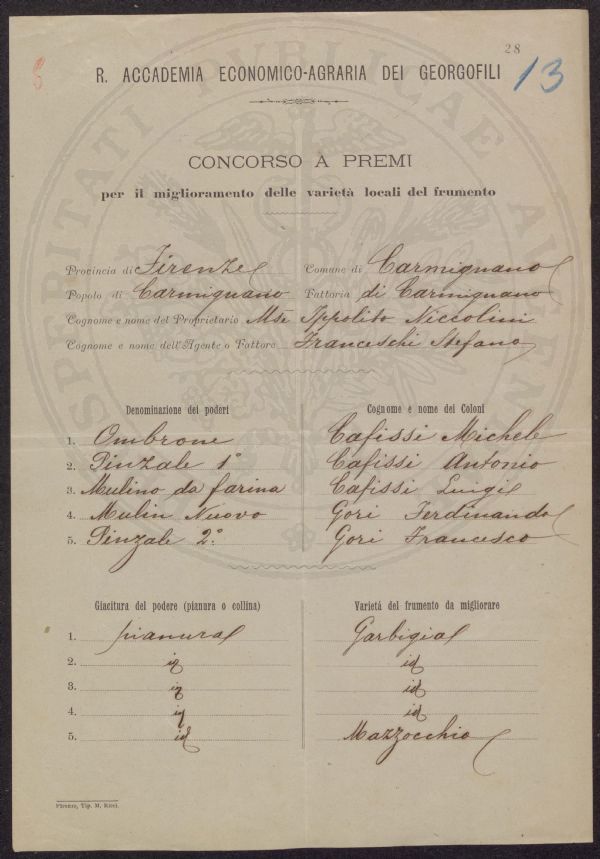 28
13
R. ACCADEMIA ECONOMICO-AGRARIA DEI GEORGOFILI
CONCORSO A PREMI
per il miglioramento delle varietà locali del frumento
Provincia di Firenze Comune di Carmignano
Popolo di Carmignano Fattoria di Carmignano
Cognome e nome del Proprietario Mse Ippolito Niccolini
Cognome e nome dell'Agente o Fattore Franceschi Stefano
Denominazione dei poderi Cognome e nome dei Coloni
1. Ombrone Cafissi Michele
2. Pinzale 1° Cafissi Antonio
3. Mulino da farina Cafissi Luigi
4. Mulin Nuovo Gori Ferdinando
5. Pinzale 2° Gori Francesco
Giacitura del podere (pianura o collina) Varietá del frumento da migliorare
1. pianura Garbigia
2. id id
3. id id
4. id id
5. id Mazzocchio
Firenze, Tip. M. Ricci.